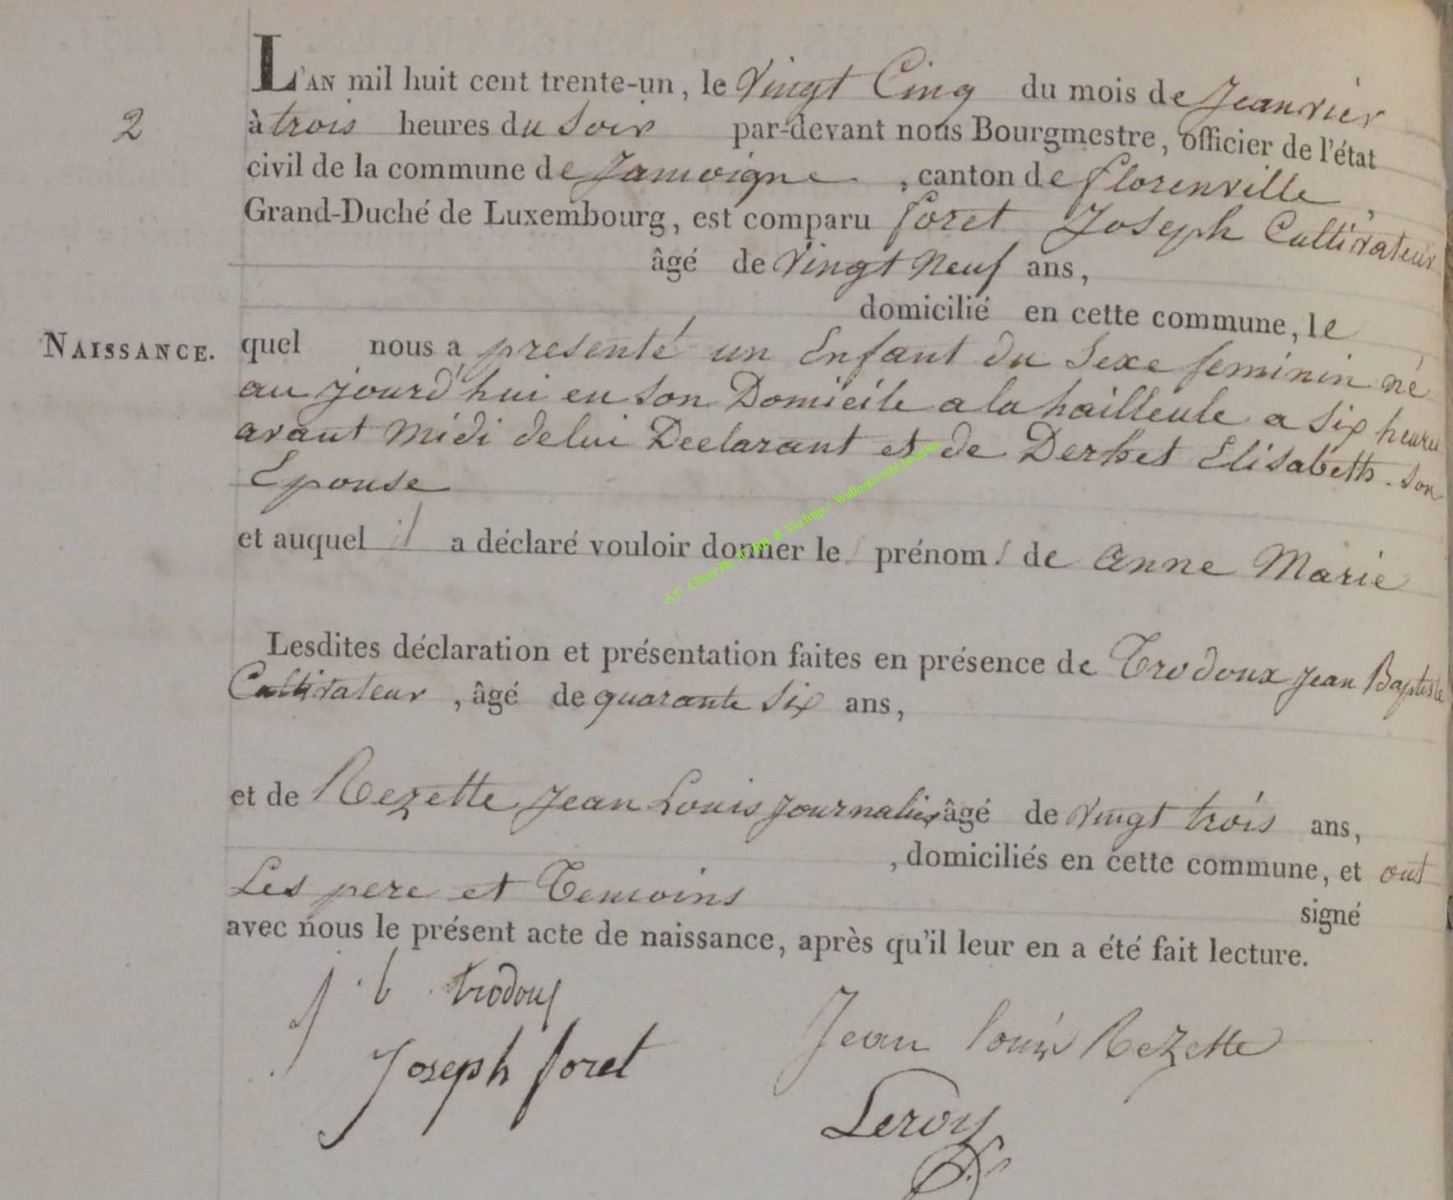 L'AN mil huit cent trente-un, le Vingt Cinq du mois de Jeanvier
2
à trois heures du Soir par-devant nous Bourgmestre, officier de l'état
civil de la commune de Jamoigne, canton de florenville,
Grand-Duché de Luxembourg, est comparu foret Joseph Cultivateur
âgé de Vingt Neuf ans,
domicilié en cette commune, le
NAISSANCE.
quel nous a presenté un Enfant du Sexe feminin né
au jourd'hui en son Domicile a la hailleule a Six heures
avant Midi de lui Declarant et de Derhet Elisabeth son
Epouse
et auquel il a déclaré vouloir donner le prénom de Anne Marie
Lesdites déclaration et présentation faites en présence de Trodoux Jean Baptiste
Cultivateur, âgé de quarante Six ans,
et de Rezette Jean Louis Journalier âgé de Vingt trois ans,
, domiciliés en cette commune, et ont
Les pere et Temoins signé
avec nous le présent acte de naissance, après qu'il leur en a été fait lecture.
j b trodoux
Jean louis Rezette
Joseph foret
Leroy